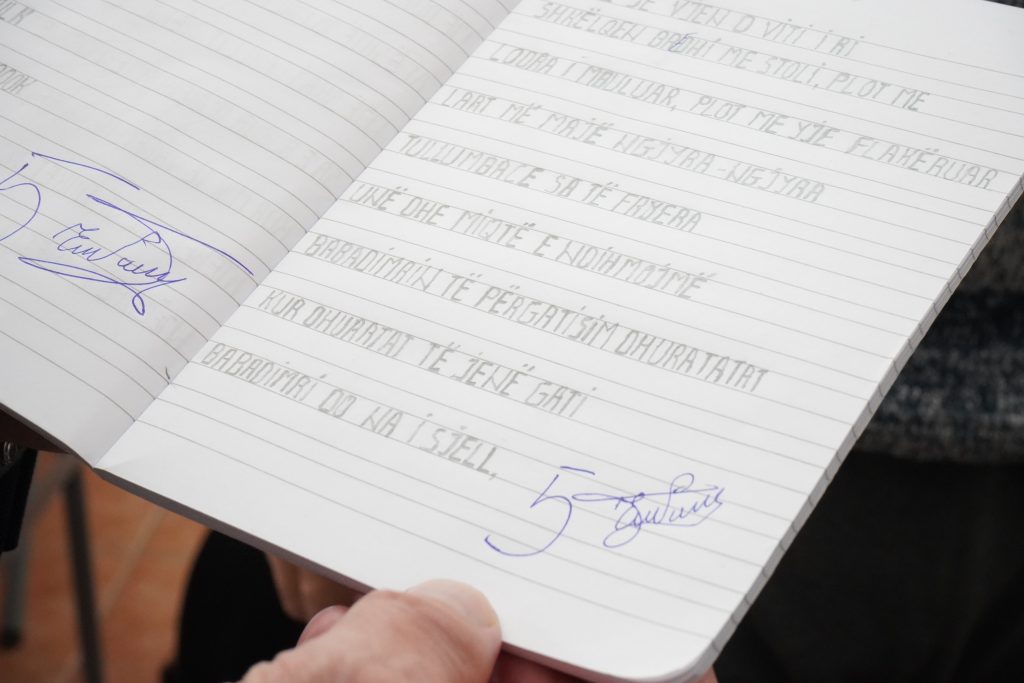 OOK
5
SE VJEN D VITI I RI
SHKËLQEN BREDHI ME STOLI, PLOT ME
LODRA I MBULUAR, PLOT ME YJE FLAKËRUAR
LART MË MAJË NGJYRA-NGJYRA
TULLUMBACE SA TË FRYERA
UNË DHE MIQTË E NDIHMOJMË
BABADIMRIN TË PËRGATISIM DHURATATAT
KUR DHURATAT TË JENË GATI
BABADIMRI DO NA I SJELL,
5